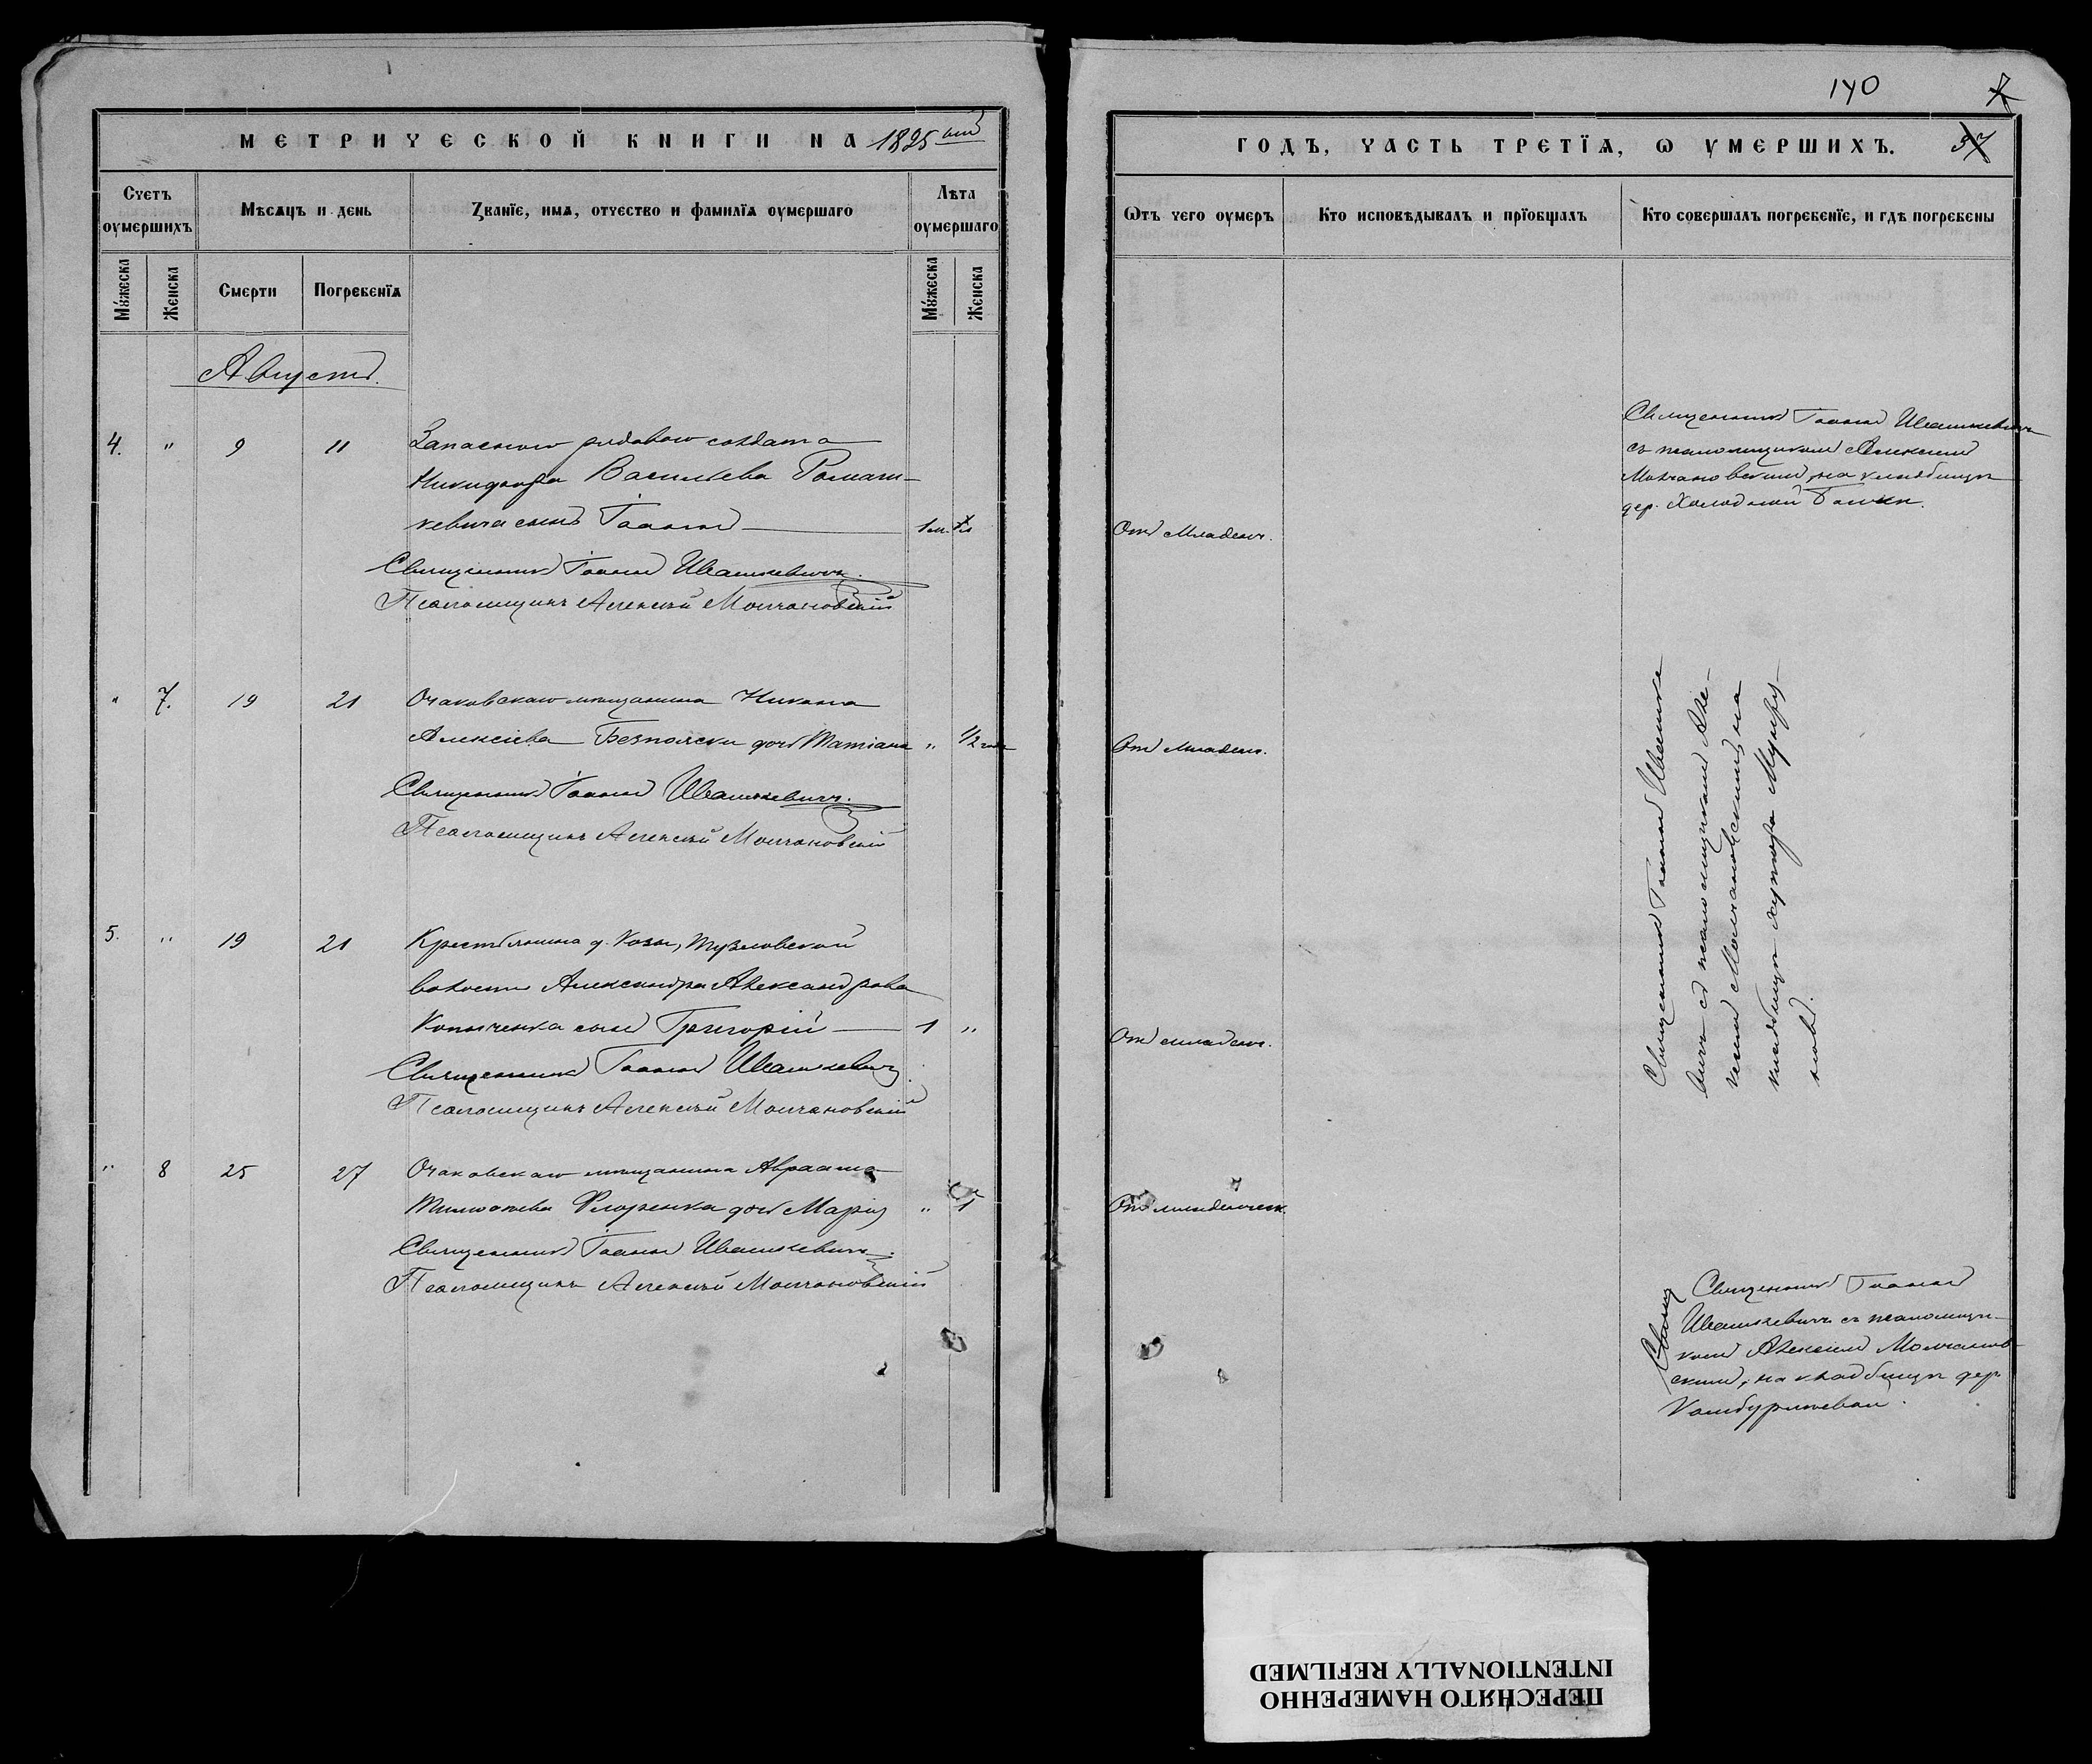 МЕТРИЧЕСКОЙ КНИГИ НА 1895 ый
Счетъ оумершихъ
Мѣсяцъ и день
Званїе, имя, отчество и фамилїя оумершаго
Лѣта оумершаго
Мужеска
Женска
Смерти
Погребенїя
Мужеска
Женска
Августъ.
4. " 9 11 Запаснаго рядоваго солдата
Никифора Васильева Ромаш-
кевича сынъ Іоаннъ 1 м.
Священникъ Іоаннъ Ивашкевичъ.
Псаломщикъ Алексѣй Молчановскій
" 7. 19 21 Очаковскаго мѣщанина Никона
Алексіева дочь Татіана " 1/2 года
Священникъ Іоаннъ Ивашкевичъ.
Псаломщикъ Алексѣй Молчановскій
5. " 19 21 Крестьянина д. Тузловской
волости Александра Александрова
сынъ Григорій 1 "
Священникъ Іоаннъ Ивашкевичъ.
Псаломщикъ Алексѣй Молчановскій
" 8 25 27 Очаковскаго мѣщанина Авраама
Тимофеева Флоренка дочь Марія " 1
Священникъ Іоаннъ Ивашкевичъ.
Псаломщикъ Алексѣй Молчановскій
140
37
ГОДЪ, ЧАСТЬ ТРЕТЇЯ, Ѡ УМЕРШИХЪ.
Ѿтъ чего оумеръ
Кто исповѣдывалъ и прїобщалъ
Кто совершалъ погребенїе, и гдѣ погребены
Священникъ Іоаннъ Ивашкевичъ
съ псаломщикомъ Алексіемъ
Молчановскимъ, на кладбищѣ
дер. Холодной Балки.
Отъ младенч.
Отъ младенч.
Священникъ Іоаннъ Ивашке
вичъ съ псаломщикомъ Але-
ксіемъ Молчановскимъ, на
кладбищѣ хутора
Отъ младенч.
Отъ младенческ.
Священникъ Іоаннъ
Ивашкевичъ съ псаломщи-
комъ Алексіемъ Молчанов-
скимъ, на кладбищѣ дер.
ПЕРЕСНЯТО НАМЕРЕННО
INTENTIONALLY REFILMED